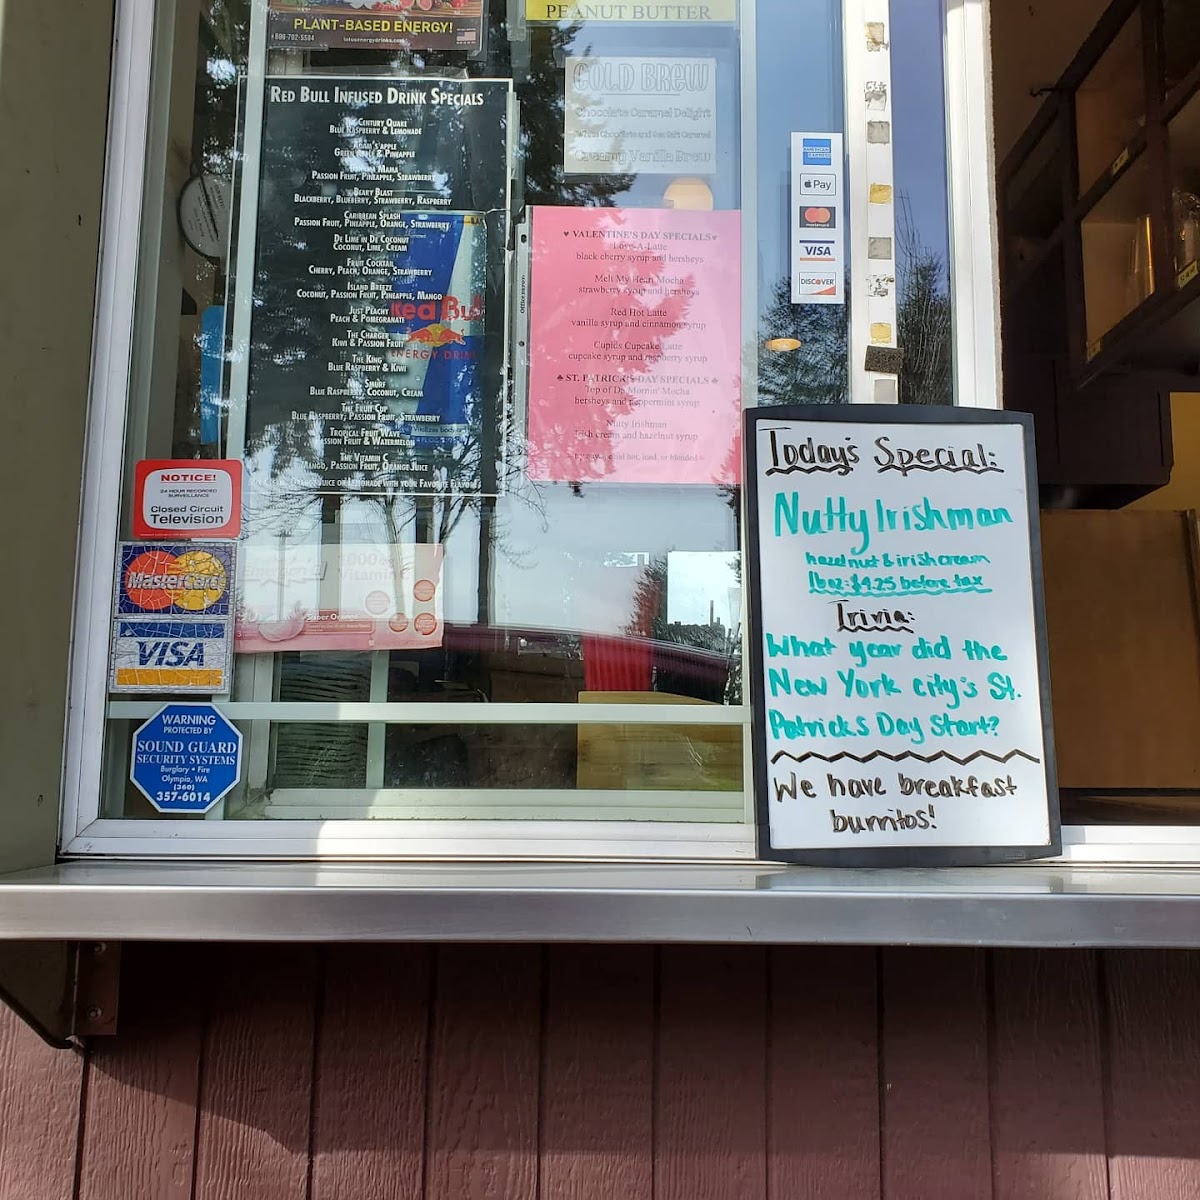 PLANT-BASED ENERGY!
PEANUT BUTTER
COLD BREW
Chocolate Caramel Delight
White Chocolate and Sea Salt Caramel
Creamy Vanilla Brew
RED BULL INFUSED DRINK SPECIALS
BLUE RASPBERRY & LEMONADE
GREEN APPLE & PINEAPPLE
MAMA
PASSION FRUIT, PINEAPPLE, STRAWBERRY
BEARY BLAST
BLACKBERRY, BLUEBERRY, STRAWBERRY, RASPBERRY
CARIBBEAN SPLASH
PASSION FRUIT, PINEAPPLE, ORANGE, STRAWBERRY
DE LIME IN DE COCONUT
COCONUT, LIME, CREAM
FRUIT COCKTAIL
CHERRY, PEACH, ORANGE, STRAWBERRY
ISLAND BREEZE
COCONUT, PASSION FRUIT, PINEAPPLE, MANGO
JUST PEACHY
PEACH & POMEGRANATE
THE CHARGER
KIWI & PASSION FRUIT
THE KING
BLUE RASPBERRY & KIWI
MR. SMURF
BLUE RASPBERRY, COCONUT, CREAM
THE FRUIT CUP
BLUE RASPBERRY, PASSION FRUIT, STRAWBERRY
TROPICAL FRUIT WAVE
PASSION FRUIT & WATERMELON
THE VITAMIN C
MANGO, PASSION FRUIT, ORANGE JUICE
Red Bull
ENERGY DRINK
♥ VALENTINE'S DAY SPECIALS ♥
Love-A-Latte
black cherry syrup and hersheys
Melt My Heart Mocha
strawberry syrup and hersheys
Red Hot Latte
vanilla syrup and cinnamon syrup
Cupids Cupcake Latte
cupcake syrup and raspberry syrup
♣ ST. PATRICK'S DAY SPECIALS ♣
Top of Da Mornin' Mocha
hersheys and peppermint syrup
Nutty Irishman
irish cream and hazelnut syrup
AMERICAN EXPRESS
Pay
mastercard
VISA
DISCOVER
NOTICE!
24 HOUR RECORDED
SURVEILLANCE
Closed Circuit
Television
MasterCard
VISA
1000mg
Vitamin C
WARNING
PROTECTED BY
SOUND GUARD
SECURITY SYSTEMS
Burglary • Fire
Olympia, WA
(360)
357-6014
Today's Special:
Nutty Irishman
hazelnut & irish cream
16oz: $4.25 before tax
Trivia:
What year did the
New York city's St.
Patricks Day Start?
We have breakfast
burritos!